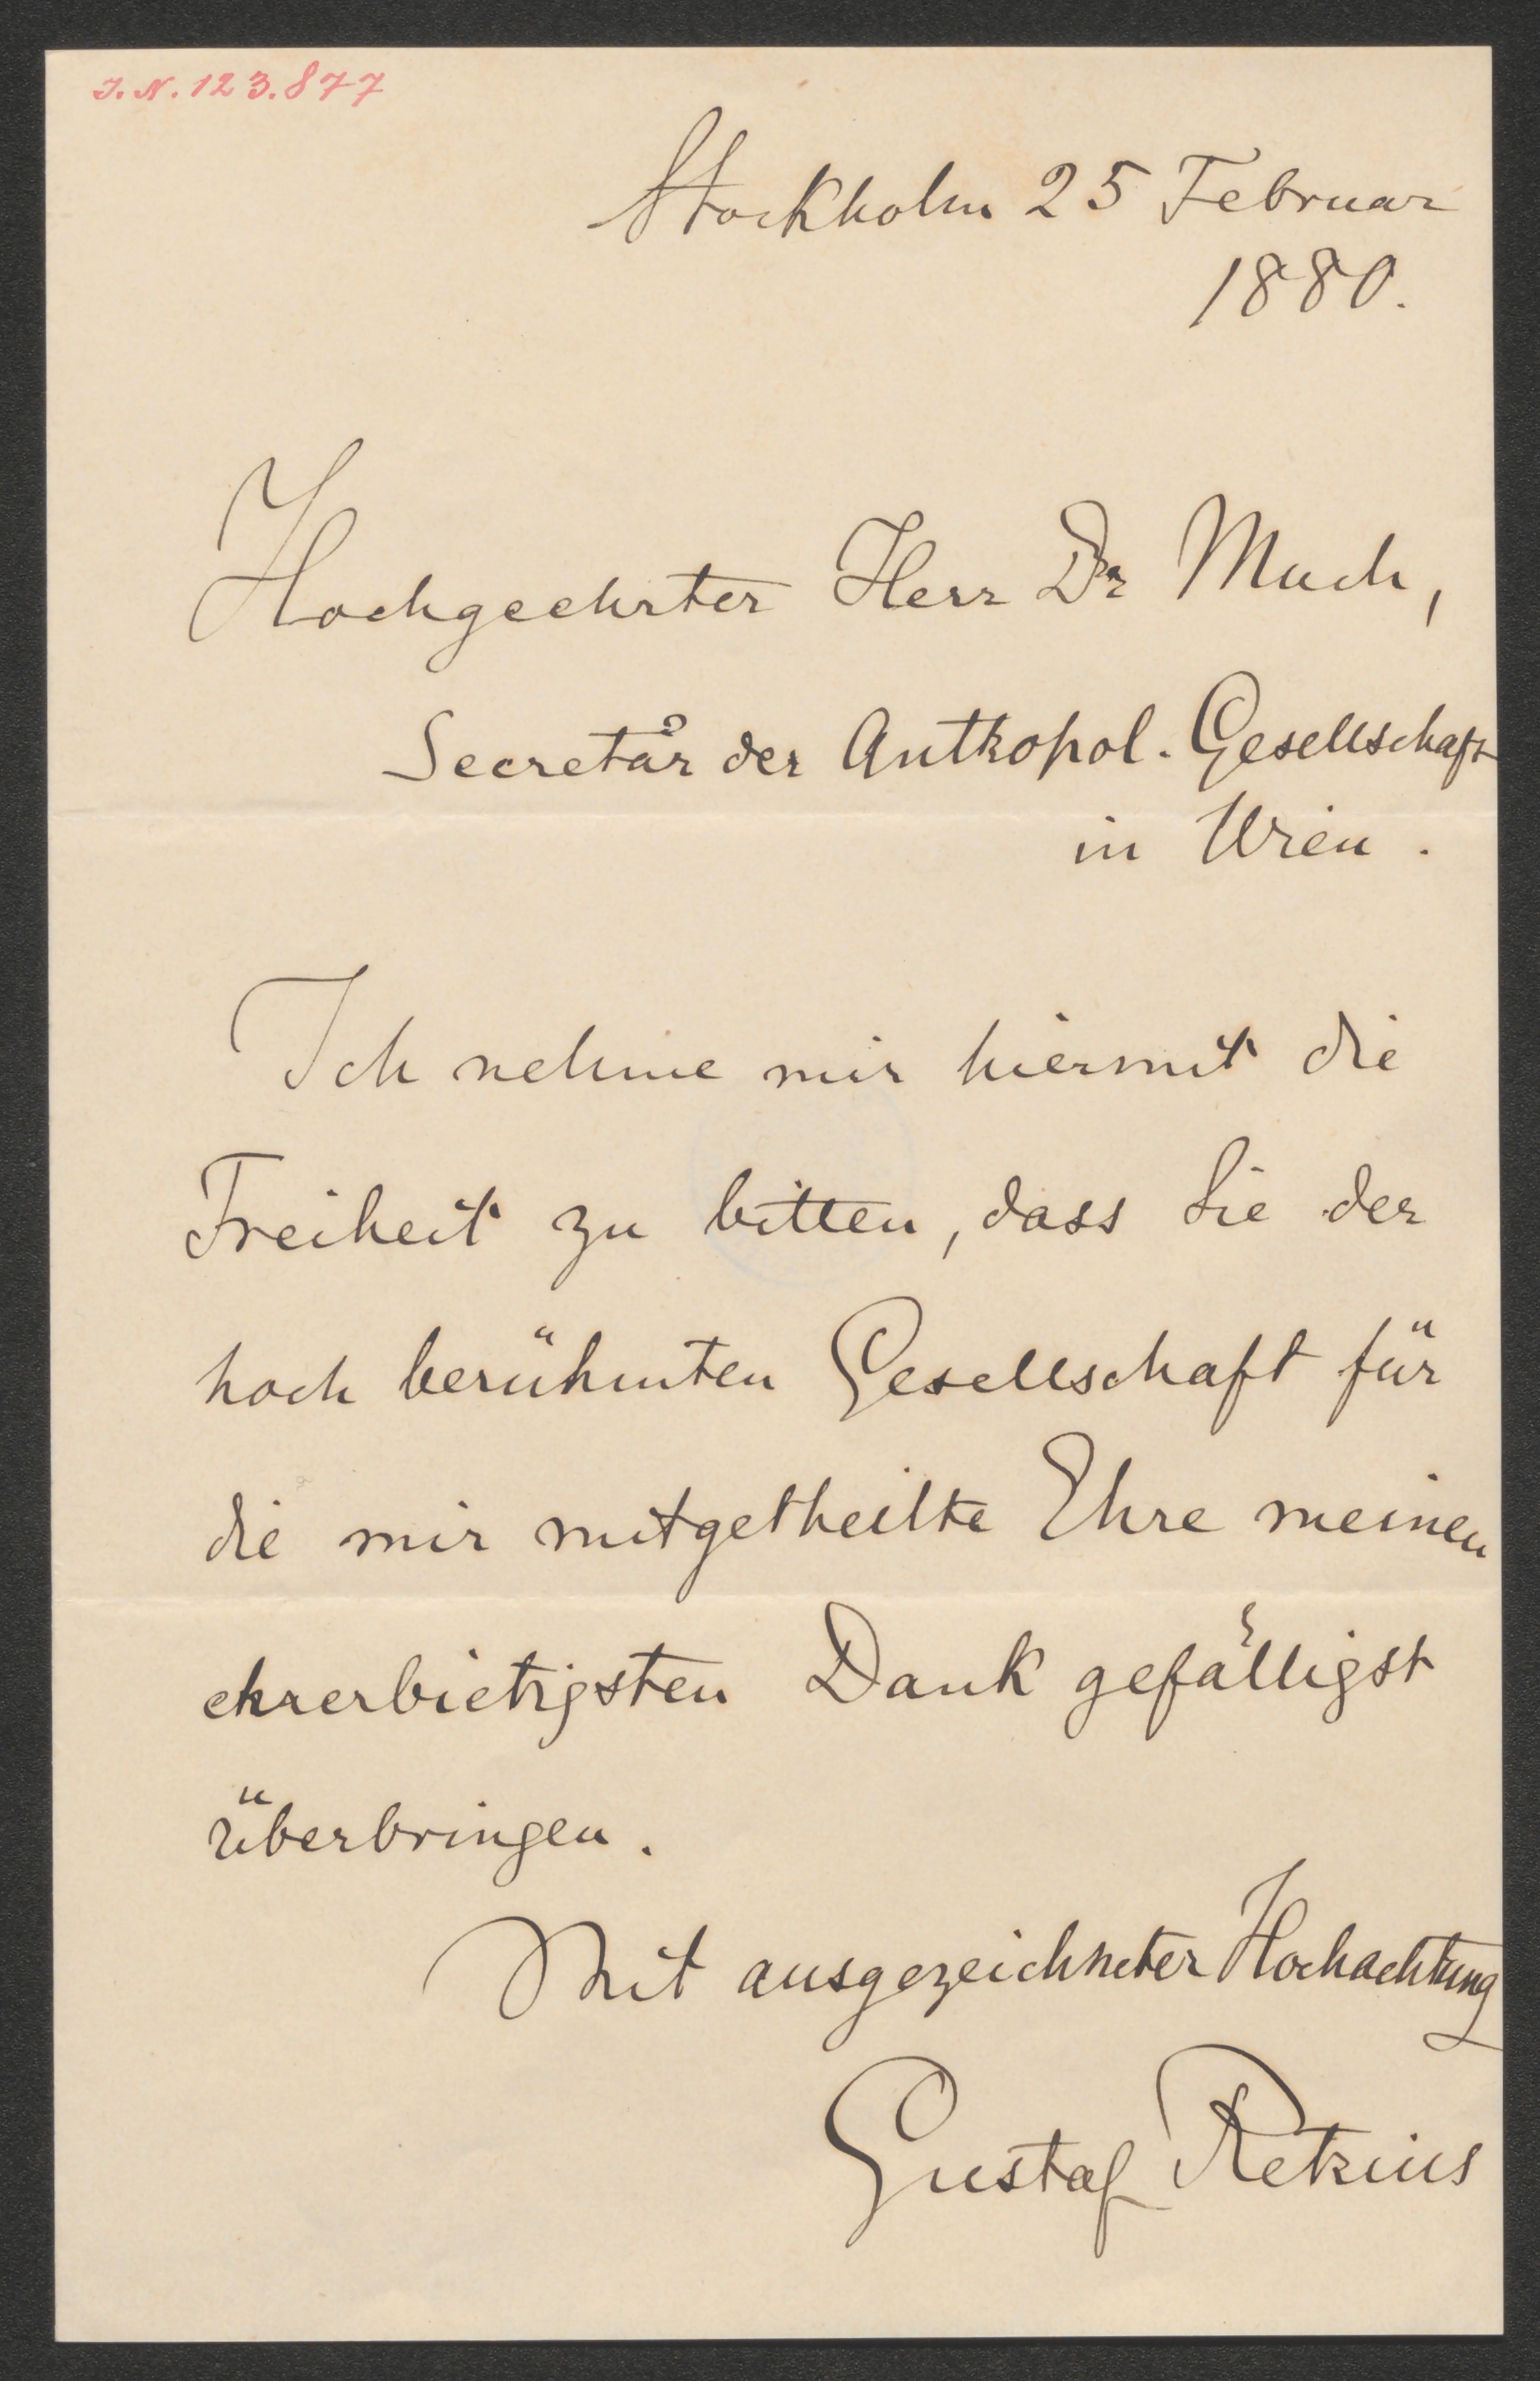 J. N. 123.877
Stockholm 25 Februar
1880.
Hochgeehrter Herr Dr Much,
Secretär der Anthropol. Gesellschaft
in Wien.
Ich nehme mir hiermit die
Freiheit zu bitten, dass Sie der
hoch berühmten Gesellschaft für
die mir mitgetheilte Ehre meinen
ehrerbietigsten Dank gefälligst
überbringen.
Mit ausgezeichneter Hochachtung
Gustaf Retzius